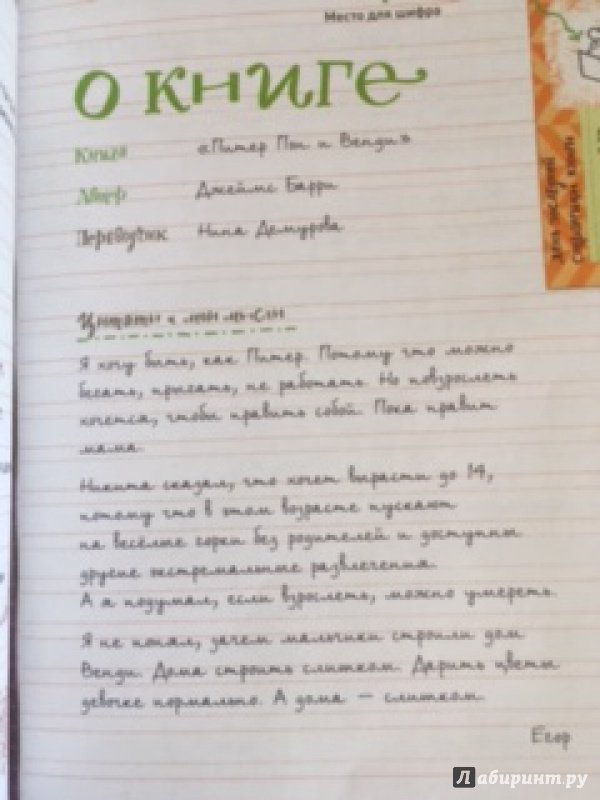 Место для шифра
О КНИГЕ
Книга «Питер Пэн и Венди»
Автор Джеймс Барри
Переводчик Нина Демурова
Цитаты и мои мысли
Я хочу быть, как Питер. Потому что можно
бегать, прыгать, не работать. Но повзрослеть
хочется, чтобы править собой. Пока правит
мама.
Никита сказал, что хочет вырасти до 14,
потому что в этом возрасте пускают
на весёлые горки без родителей и доступны
другие экстремальные развлечения.
А я подумал, если взрослеть, можно умереть.
Я не понял, зачем мальчики строили дом
Венди. Дома строить слишком. Дарить цветы
девочке нормально. А дома — слишком.
Егор
Лабиринт.ру